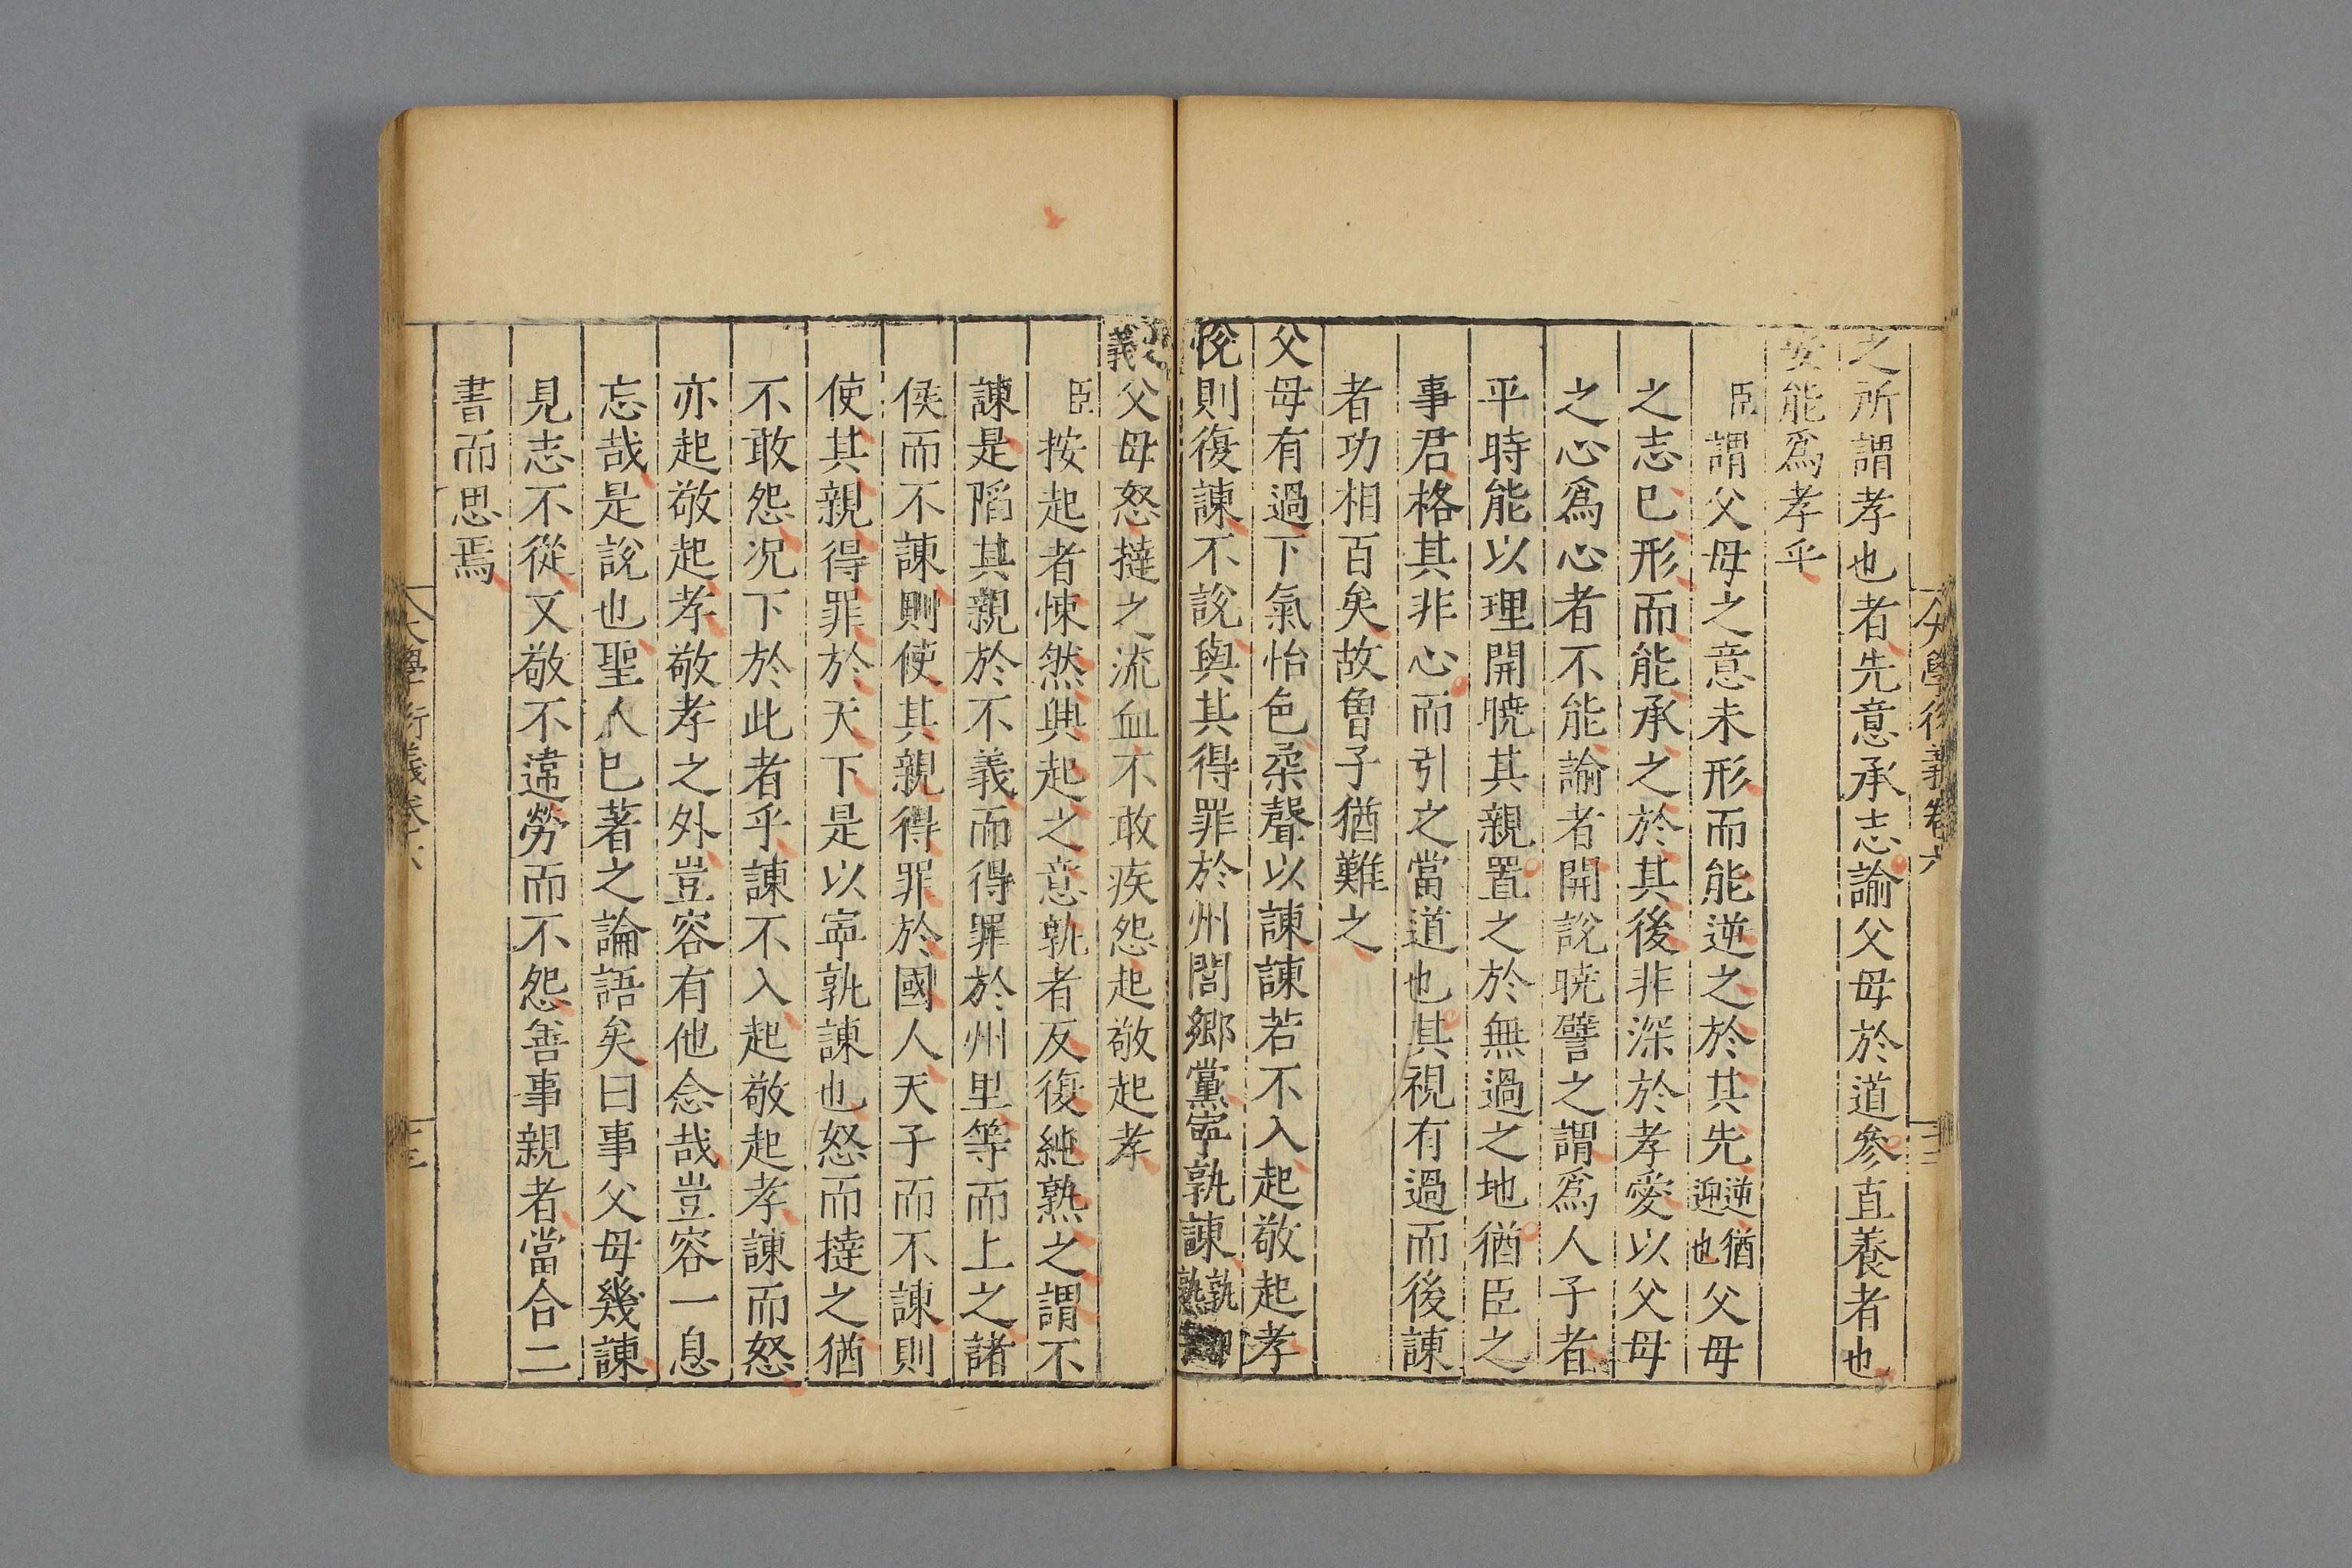 之所謂孝也者先意承志諭父母於道參直養者也
安能爲孝乎
臣謂父母之意未形而能逆之於其先逆猶迎也父母
之志已形而能承之於其後非深於孝愛以父母
之心爲心者不能諭者開說曉譬之謂爲人子者
平時能以理開曉其親置之於無過之地猶臣之
事君格其非心而引之當道也其視有過而後諫
者功相百矣故曾子猶難之
父母有過下氣怡色柔聲以諫諫若不入起敬起孝
悅則復諫不說與其得罪於州閭鄉黨寧孰諫孰熟
義父母怒撻之流血不敢疾怨起敬起孝
臣按起者悚然興起之意孰者反復純熟之謂不
諫是陷其親於不義而得罪於州里等而上之諸
侯而不諫則使其親得罪於國人天子而不諫則
使其親得罪於天下是以寧孰諫也怒而撻之猶
不敢怨况下於此者乎諫不入起敬起孝諫而怒
亦起敬起孝敬孝之外豈容有他念哉豈容一息
忘哉是說也聖人已著之論語矣曰事父母幾諫
見志不從又敬不違勞而不怨善事親者當合二
書而思焉
大學衍義卷六